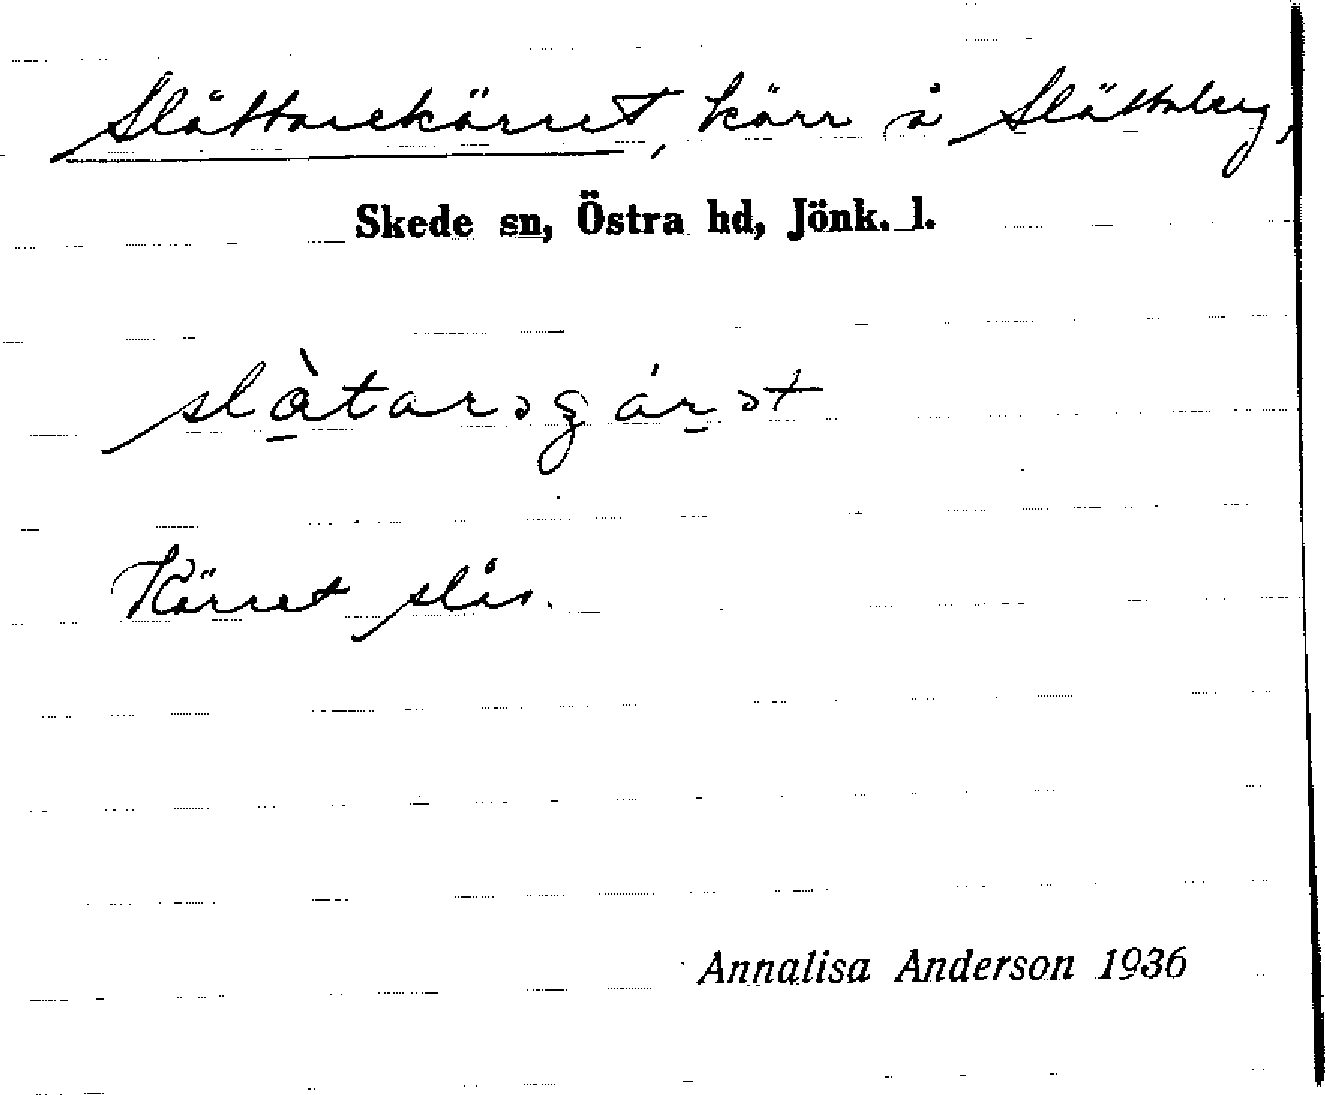 Slåttarekärret, kärr å Slättaberg,
Skede sn, Östra hd, Jönk. l.
Kärret slås.
Annalisa Anderson 1936